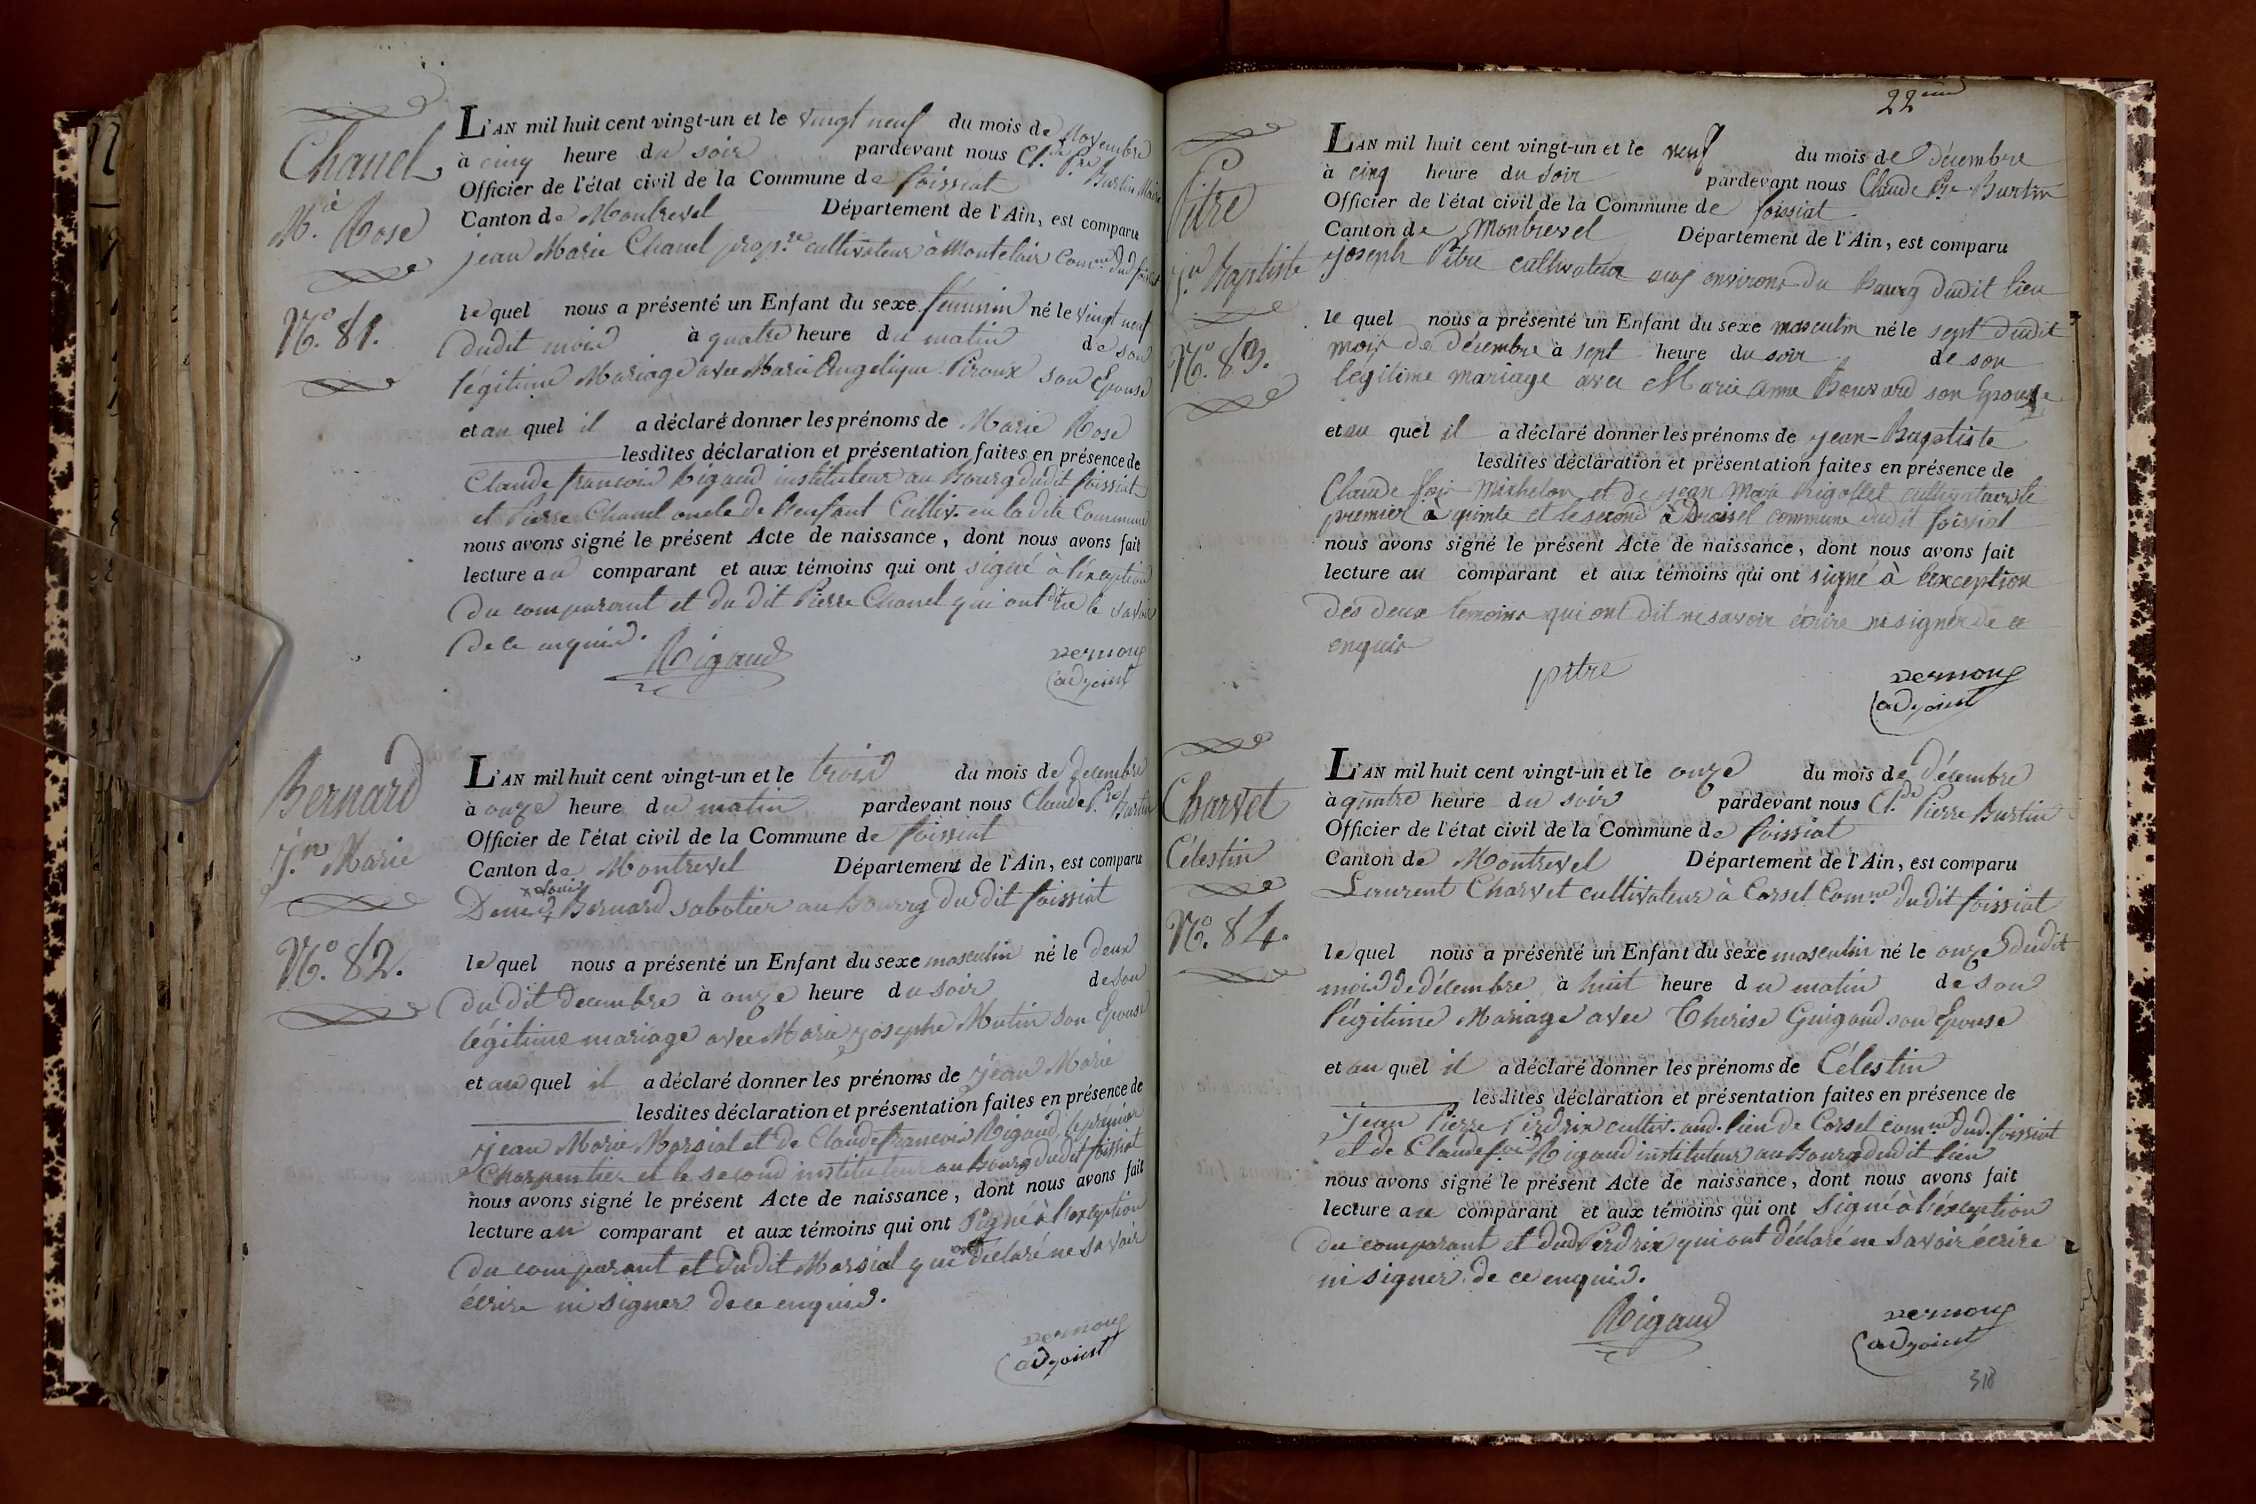 Chanel
M.ie Rose
N.o 81.
L'AN mil huit cent vingt-un et le vingt neuf du mois de Novembre
à cinq heure du soir pardevant nous Cl.de P.re Burtin Maire
Officier de l'état civil de la Commune de foissiat
Canton de Montrevel Département de l'Ain, est comparu
jean Marie Chanel prop.re cultivateur à Montclair Com.ne dud. foissiat
le quel nous a présenté un Enfant du sexe féminin né le vingt neuf
dudit mois à quatre heure du matin de son
légitime Mariage avec Marie Angelique Piroux son Epouse
et au quel il a déclaré donner les prénoms de Marie Rose
lesdites déclaration et présentation faites en présence de
Claude françois Rigaud instituteur au Bourg dudit foissiat
et Pierre Chanel oncle de l'enfant Cultiv. en la dite Commune
nous avons signé le présent Acte de naissance, dont nous avons fait
lecture au comparant et aux témoins qui ont signé à l'exception
du comparant et du dit Pierre Chanel qui ont dit ne le savoir
de ce enquis.
Rigaud
vernoux
adjoint
Bernard
J.n Marie
N.o 82.
L'AN mil huit cent vingt-un et le trois du mois de decembre
à onze heure du matin pardevant nous Claude P.re Burtin
Officier de l'état civil de la Commune de foissiat
Canton de Montrevel Département de l'Ain, est comparu
Bernard sabotier au bourg du dit foissiat
le quel nous a présenté un Enfant du sexe masculin né le deux
du dit decembre à onze heure du soir de son
légitime mariage avec Marie josephe Mutin son Epouse
et au quel il a déclaré donner les prénoms de jean Marie
lesdites déclaration et présentation faites en présence de
jean Marie Marsial et de Claude françois Rigaud, le prémier
Charpentier et le second instituteur au Bourg dudit foissiat
nous avons signé le présent Acte de naissance, dont nous avons fait
lecture au comparant et aux témoins qui ont signé à l'exception
du comparant et dudit Marsial qui ont déclaré ne savoir
écrire ni signer de ce enquis.
vernoux
adjoint
22eme
Pitre
J.n Baptiste
N.o 83.
L'AN mil huit cent vingt-un et le neuf du mois de décembre
à cinq heure du soir pardevant nous Claude P.re Burtin
Officier de l'état civil de la Commune de foissiat
Canton de Montrevel Département de l'Ain, est comparu
joseph Pitre cultivateur aux environs du Bourg dudit lieu
le quel nous a présenté un Enfant du sexe masculin né le sept dudit
mois de décembre à sept heure du soir de son
légitime mariage avec Marie Anne Bouvard son Epouse
et au quel il a déclaré donner les prénoms de jean-Baptiste
lesdites déclaration et présentation faites en présence de
Claude Michelon et de jean Marie Rigollet cultivateurs le
premier à et le second à commune dudit foissiat
nous avons signé le présent Acte de naissance, dont nous avons fait
lecture au comparant et aux témoins qui ont signé à l'exception
des deux témoins qui ont dit ne savoir écrire ni signer de ce
enquis
pitre
vernoux
adjoint
Charvet
Célestin
N.o 84.
L'AN mil huit cent vingt-un et le onze du mois de décembre
à quatre heure du soir pardevant nous Cl.de Pierre Burtin
Officier de l'état civil de la Commune de foissiat
Canton de Montrevel Département de l'Ain, est comparu
Laurent Charvet cultivateur à Corsel Com.ne du dit foissiat
le quel nous a présenté un Enfant du sexe masculin né le onze dudit
mois de décembre à huit heure du matin de son
légitime Mariage avec Therese Guigaud son Epouse
et au quel il a déclaré donner les prénoms de Célestin
lesdites déclaration et présentation faites en présence de
jean Pierre Perdrix cultiv. aud. lieu de Corsel com.ne dud. foissiat
et de Claude f.ois Rigaud instituteur au Bourg dudit lieu
nous avons signé le présent Acte de naissance, dont nous avons fait
lecture au comparant et aux témoins qui ont signé à l'exception
du comparant et dud. Perdrix qui ont déclaré ne savoir écrire
ni signer de ce enquis.
Rigaud
vernoux
adjoint
318